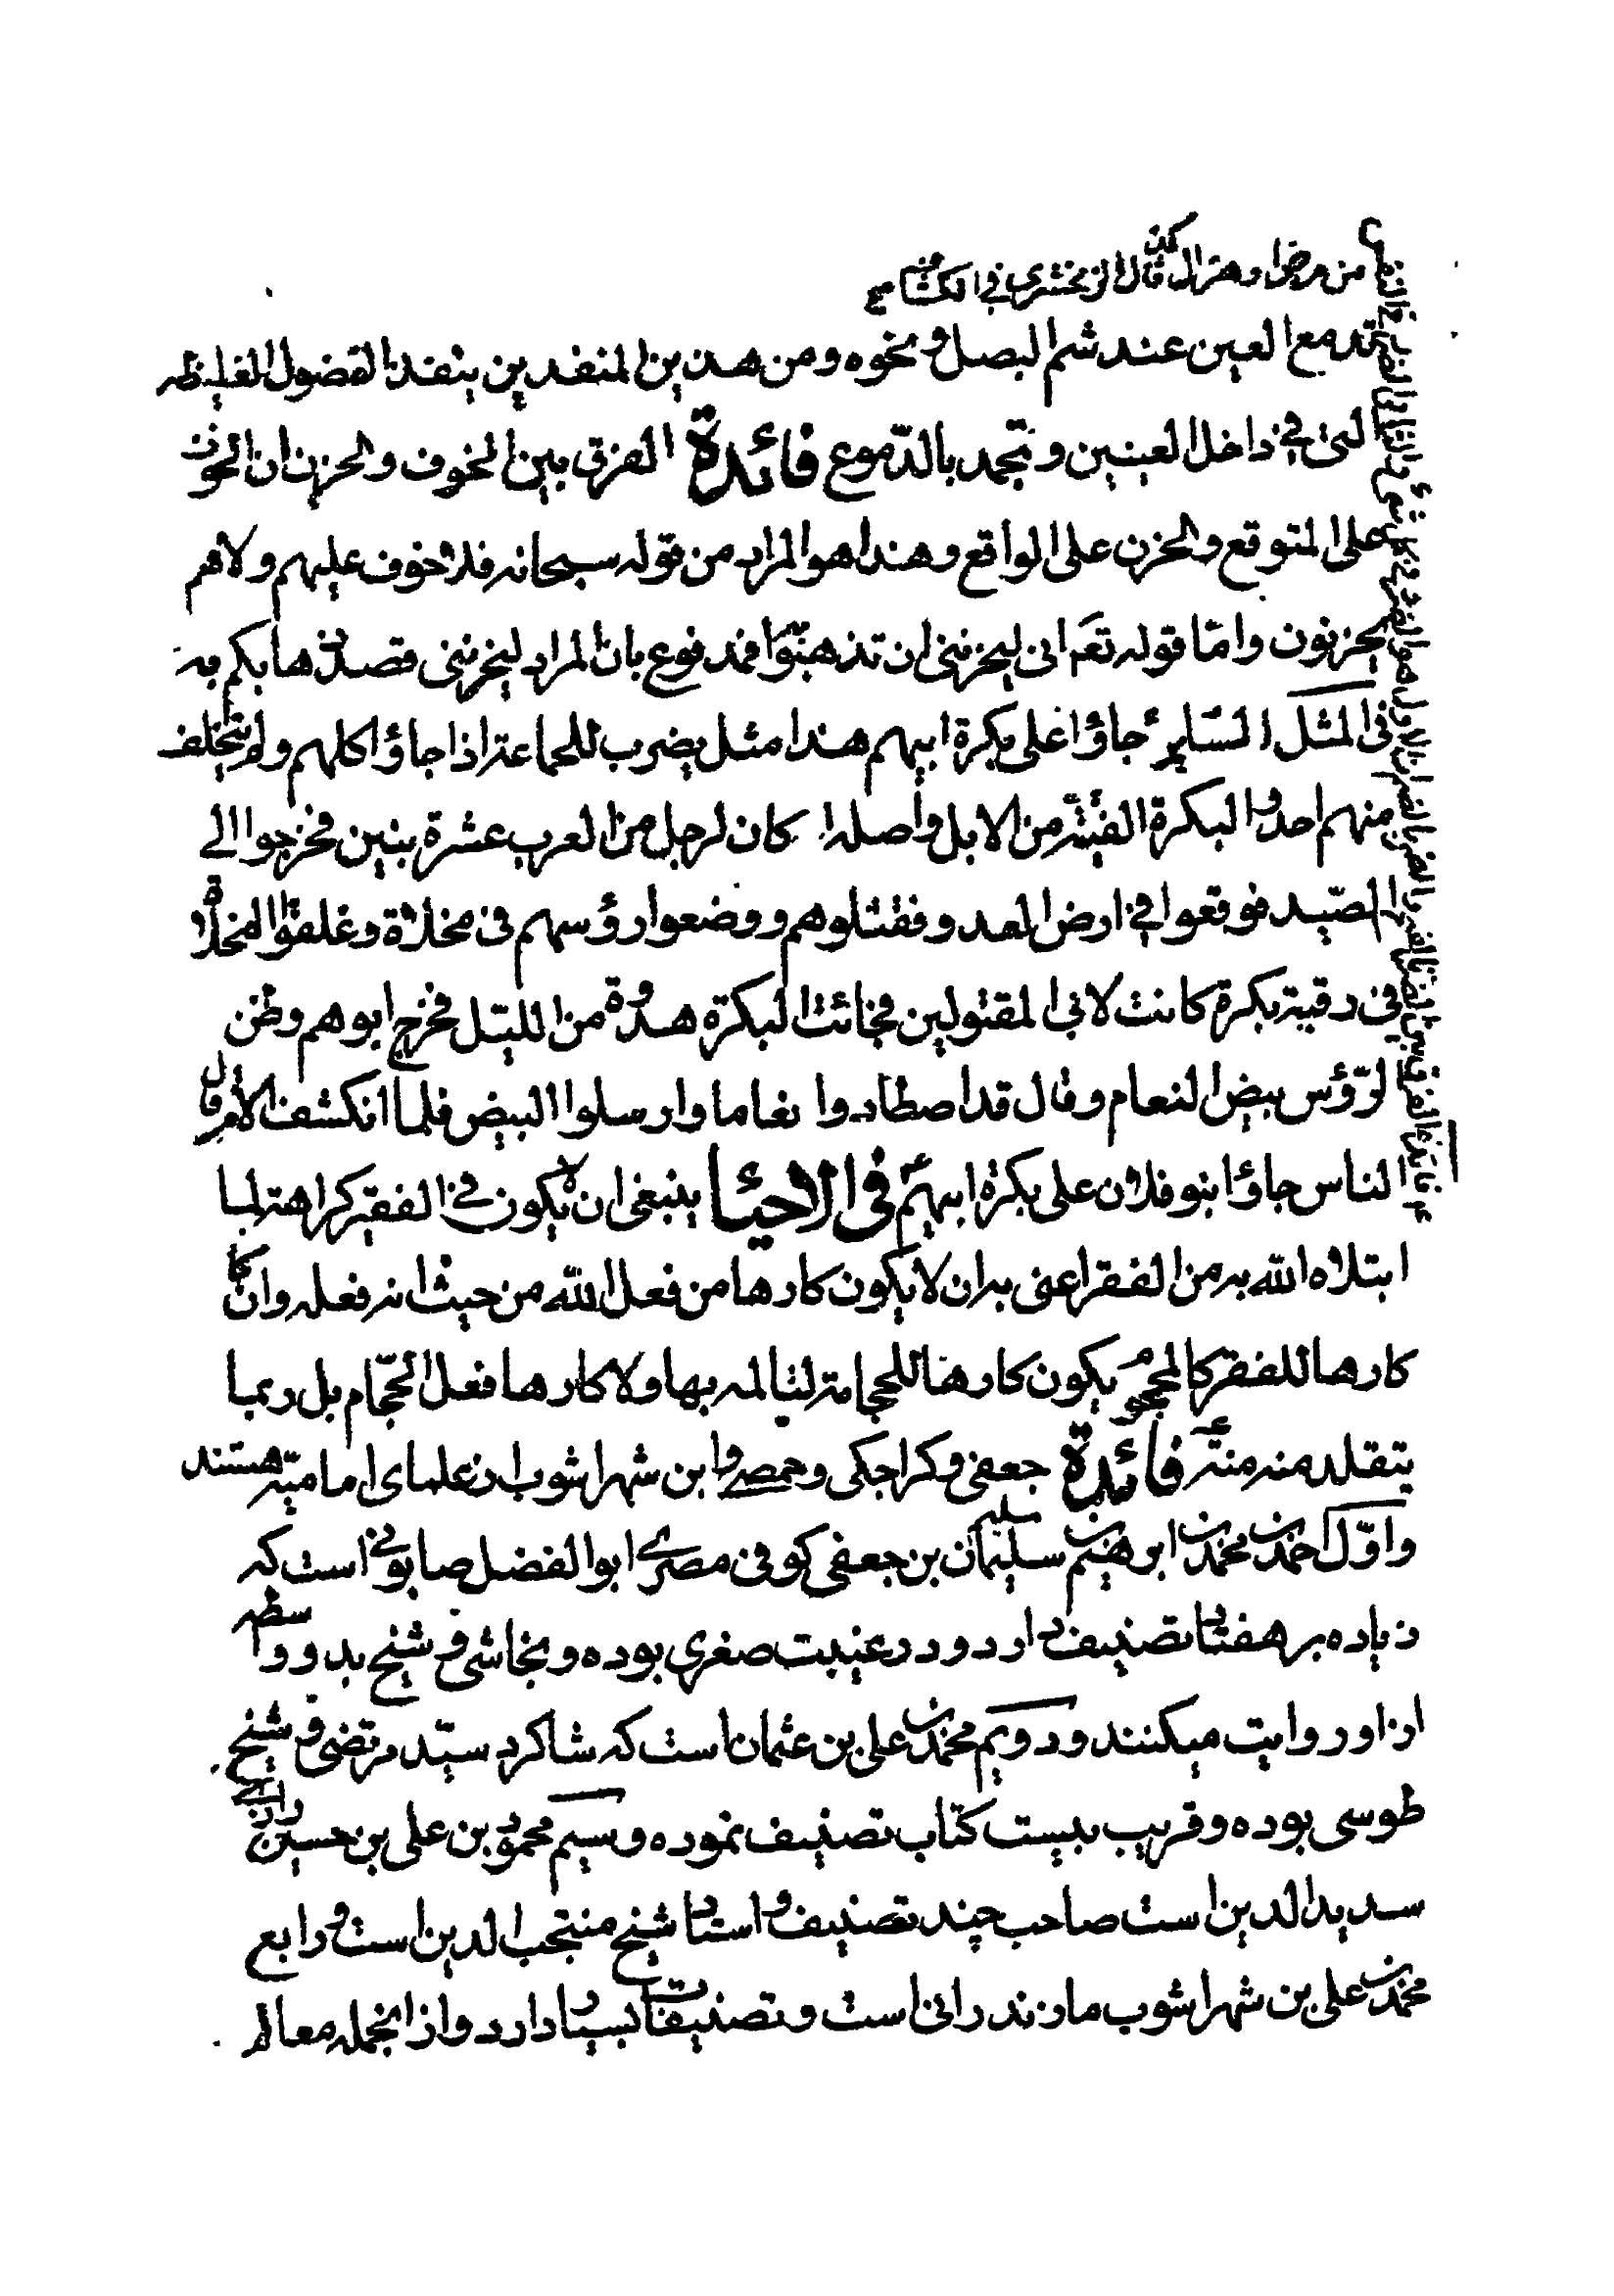 من مرض او هزال كذا قال الزمخشري في الكشاف منه
تدمع العين عند شم البصل و نحوه ومن هذين المنفذين ينفذ الفضول الغليظه
التى فى داخل العينين و تجمد بالدّموع فائدة الفرق بين الخوف والحزن ان الخوف
على المتوقع والحزن على الواقع وهذا هو المراد من قوله سبحانه فلا خوف عليهم ولا هم
يحزنون وامّا قوله تعم انى ليحزننى ان تذهبوا فمدفوع بان المراد ليحزننى قصد ذهابكم به
فى المثل السّاير جاؤا على بكرة ابيهم هذا مثل يضرب للجماعة اذا جاؤا كلهم ولم يتخلف
منهم احد و البكرة الفتية من الابل و اصله كان لرجل من العرب عشرة بنين فخرجوا الى
الصّيد فوقعوا فى ارض العدو فقتلوهم ووضعوا رؤسهم فى مخلاة وعلقوا المخلاة
فى رقبة بكرة كانت لابى المقتولين فجائت البكرة هدوة من الليل فخرج ابوهم وظن
الرّؤس بيض النعام وقال قد اصطادوا نعاما وارسلوا البيض فلما انكشف الامر قال
الناس جاؤا بنو فلان على بكرة ابيهم فى الاحياء ينبغى ان لا يكون فى الفقير كراهة لما
ابتلاه الله به من الفقر اعنى به ان لا يكون كارها من فعل الله من حيث انه فعله وان كان
كارها للفقر كالمحجوم يكون كارها للحجامة لتالمه بها ولا كارها فعل الحجّام بل ربما
يتقلد منه منة فائدة جعفى و كراجكى و حمصى و ابن شهراشوب از علماى اماميّه هستند
و اوّل احمد بن محمد بن ابرهيم بن سليمان بن جعفى كوفى مصرى ابو الفضل صابونى است كه
زياده بر هفتاد تصنيف دارد و در غيبت صغرى بوده و نجاشى و شيخ بدو واسطه
از او روايت ميكنند و دويم محمد بن على بن عثمان است كه شاكرد سيّد مرتضى و شيخ
طوسى بوده و قريب بيست كتاب تصنيف نموده و سيم محمود بن على بن حسين رازى
سديد الدين است صاحب چند تصنيف و استاد شيخ منتجب الدين است و رابع
محمد بن على بن شهراشوب مازندرانى است و تصنيفات بسيار دارد و از انجمله معالم